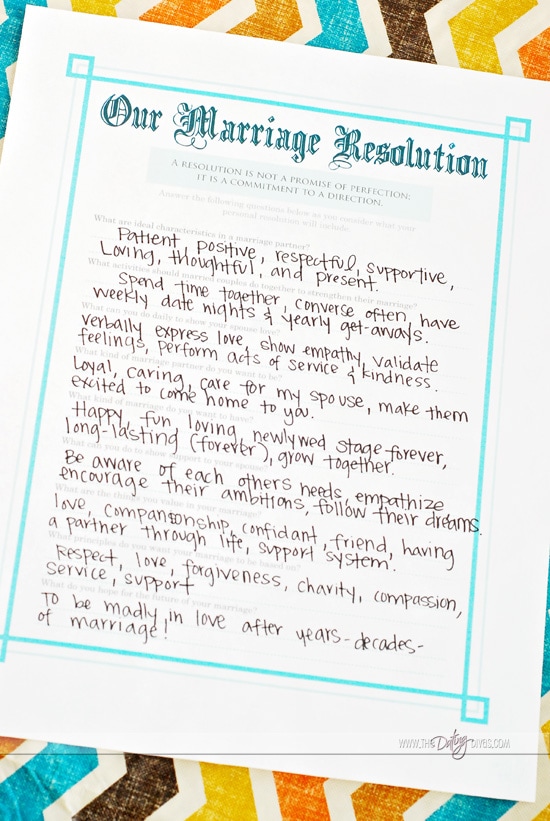 Our Marriage Resolution
A RESOLUTION IS NOT A PROMISE OF PERFECTION;
IT IS A COMMITMENT TO A DIRECTION.
Answer the following questions below as you consider what your
personal resolution will include.
What are ideal characteristics in a marriage partner?
Patient, positive, respectful, supportive,
Loving, thoughtful, and present.
What activities should married couples do together to strengthen their marriage?
Spend time together, converse often, have
weekly date nights & yearly get-aways.
What can you do daily to show your spouse love?
verbally express love, show empathy, validate
feelings, perform acts of service & kindness.
What kind of marriage partner do you want to be?
Loyal, caring, care for my spouse, make them
excited to come home to you.
What kind of marriage do you want to have?
Happy, fun loving, newlywed stage forever,
long-lasting (forever), grow together.
What can you do to show support to your spouse?
Be aware of each others needs, empathize
encourage their ambitions, follow their dreams.
What are the things you value in your marriage?
love, companionship, confidant, friend, having
a partner through life, support 'system'.
What principles do you want your marriage to be based on?
Respect, love, forgiveness, charity, compassion,
service, support
What do you hope for the future of your marriage?
To be madly in love after years-decades-
of marriage!
WWW.THE Dating DIVAS.COM